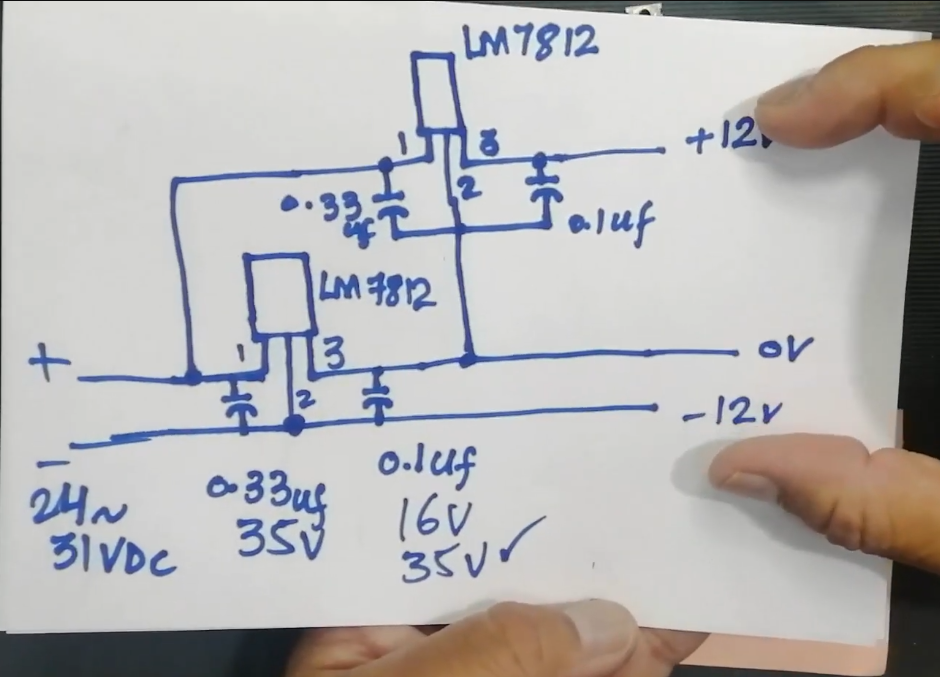 LM7812
+12v
1
3
2
0.33
uf
0.1uf
LM7812
+
1
3
2
0V
-12v
-
24~
31VDC
0.33uf
35V
0.1uf
16V
35V✓